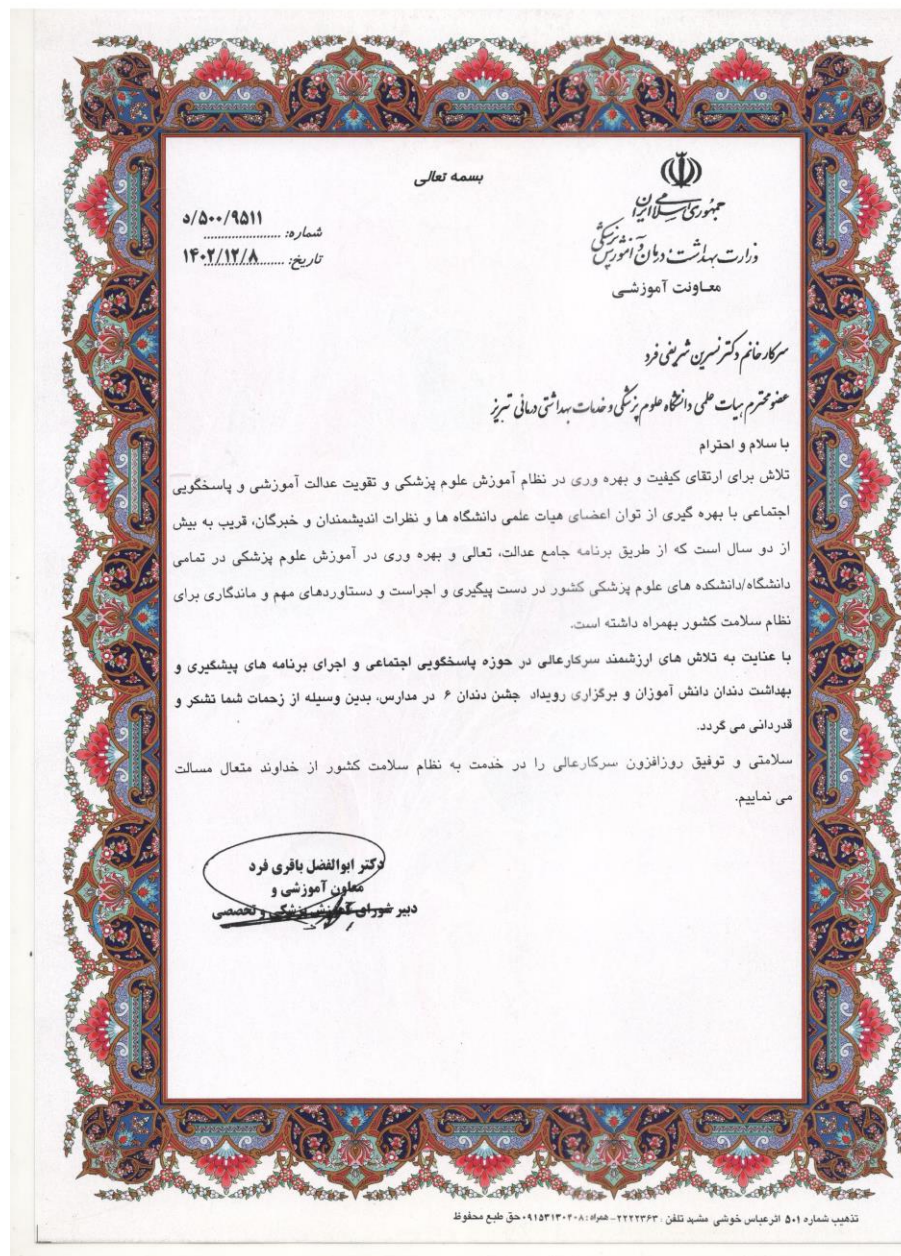 بسمه تعالی
جمهوری اسلامی ایران
وزارت بهداشت، درمان و آموزش پزشکی
معاونت آموزشی
شماره: ۹۵۱۱/۵۰۰/د
تاریخ: ۱۴۰۲/۱۲/۸
سرکار خانم دکتر نسرین شریفی فرد
عضو محترم هیات علمی دانشگاه علوم پزشکی و خدمات بهداشتی درمانی تبریز
با سلام و احترام
تلاش برای ارتقای کیفیت و بهره وری در نظام آموزش علوم پزشکی و تقویت عدالت آموزشی و پاسخگویی
اجتماعی با بهره گیری از توان اعضای هیات علمی دانشگاه ها و نظرات اندیشمندان و خبرگان، قریب به بیش
از دو سال است که از طریق برنامه جامع عدالت، تعالی و بهره وری در آموزش علوم پزشکی در تمامی
دانشگاه/دانشکده های علوم پزشکی کشور در دست پیگیری و اجراست و دستاوردهای مهم و ماندگاری برای
نظام سلامت کشور بهمراه داشته است.
با عنایت به تلاش های ارزشمند سرکارعالی در حوزه پاسخگویی اجتماعی و اجرای برنامه های پیشگیری و
بهداشت دندان دانش آموزان و برگزاری رویداد جشن دندان ۶ در مدارس، بدین وسیله از زحمات شما تشکر و
قدردانی می گردد.
سلامتی و توفیق روزافزون سرکارعالی را در خدمت به نظام سلامت کشور از خداوند متعال مسالت
می نماییم.
دکتر ابوالفضل باقری فرد
معاون آموزشی و
دبیر شورای آموزش پزشکی و تخصصی
تذهیب شماره ۵۰۱ اثر عباس خوشی مشهد تلفن : ۲۲۲۲۳۶۳ - همراه : ۰۹۱۵۳۱۳۰۴۰۸ حق طبع محفوظ